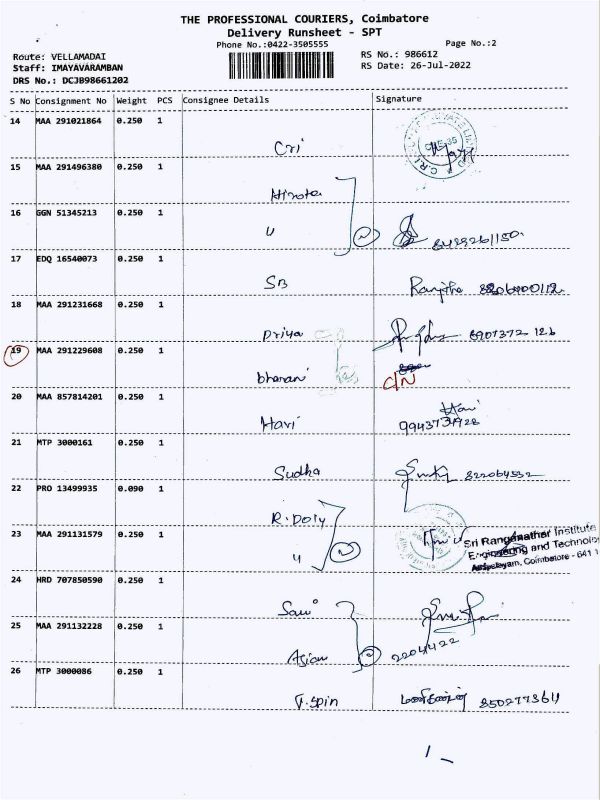 THE PROFESSIONAL COURIERS, Coimbatore
Delivery Runsheet - SPT
Phone No.:0422-3505555
Page No.:2
Route: VELLAMADAI
RS No.: 986612
Staff: IMAYAVARAMBAN
RS Date: 26-Jul-2022
DRS No.: DCJB98661202
S No Consignment No Weight PCS Consignee Details Signature
14 MAA 291021864 0.250 1
Cri
15 MAA 291496380 0.250 1
Hirota
16 GGN 51345213 0.250 1
u
17 EDQ 16540073 0.250 1
SB Ranjitha
18 MAA 291231668 0.250 1
Priya
19 MAA 291229608 0.250 1
bharani C/N
20 MAA 857814201 0.250 1
Hari
21 MTP 3000161 0.250 1
Sudha
22 PRO 13499935 0.090 1
R. Poly
23 MAA 291131579 0.250 1
Sri Ranganathar Institute
Engineering and Technolo
Coimbatore - 641 1
u
24 HRD 707850590 0.250 1
25 MAA 291132228 0.250 1
Asian 2204422
26 MTP 3000086 0.250 1
T. Spin 850277364